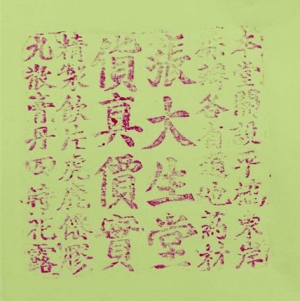 本堂開設平東岸
採辦各省道地藥材
張大生堂
價真價實
精製飲片虎鹿膠
丸散膏丹四時花露